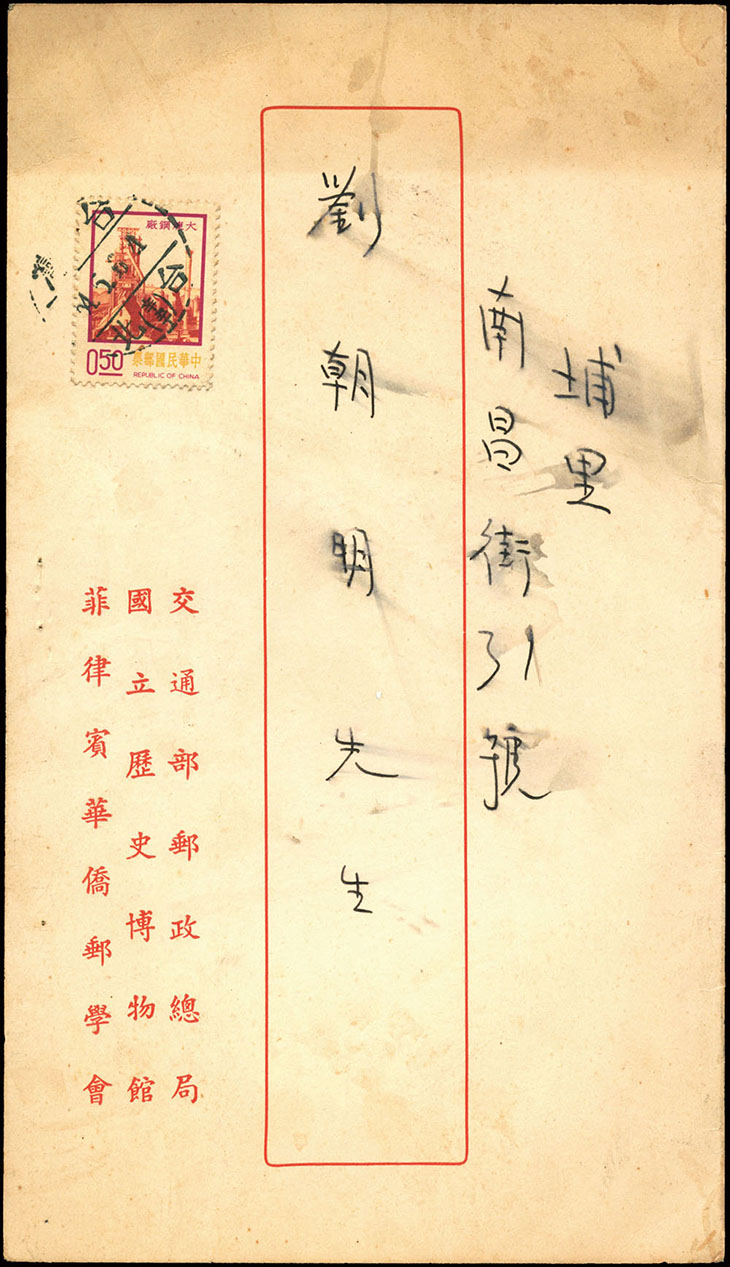 埔里
南昌街31號
劉朝明先生
大煉鋼廠
050
中華民國郵票
REPUBLIC OF CHINA
交通部郵政總局
國立歷史博物館
菲律賓華僑郵學會